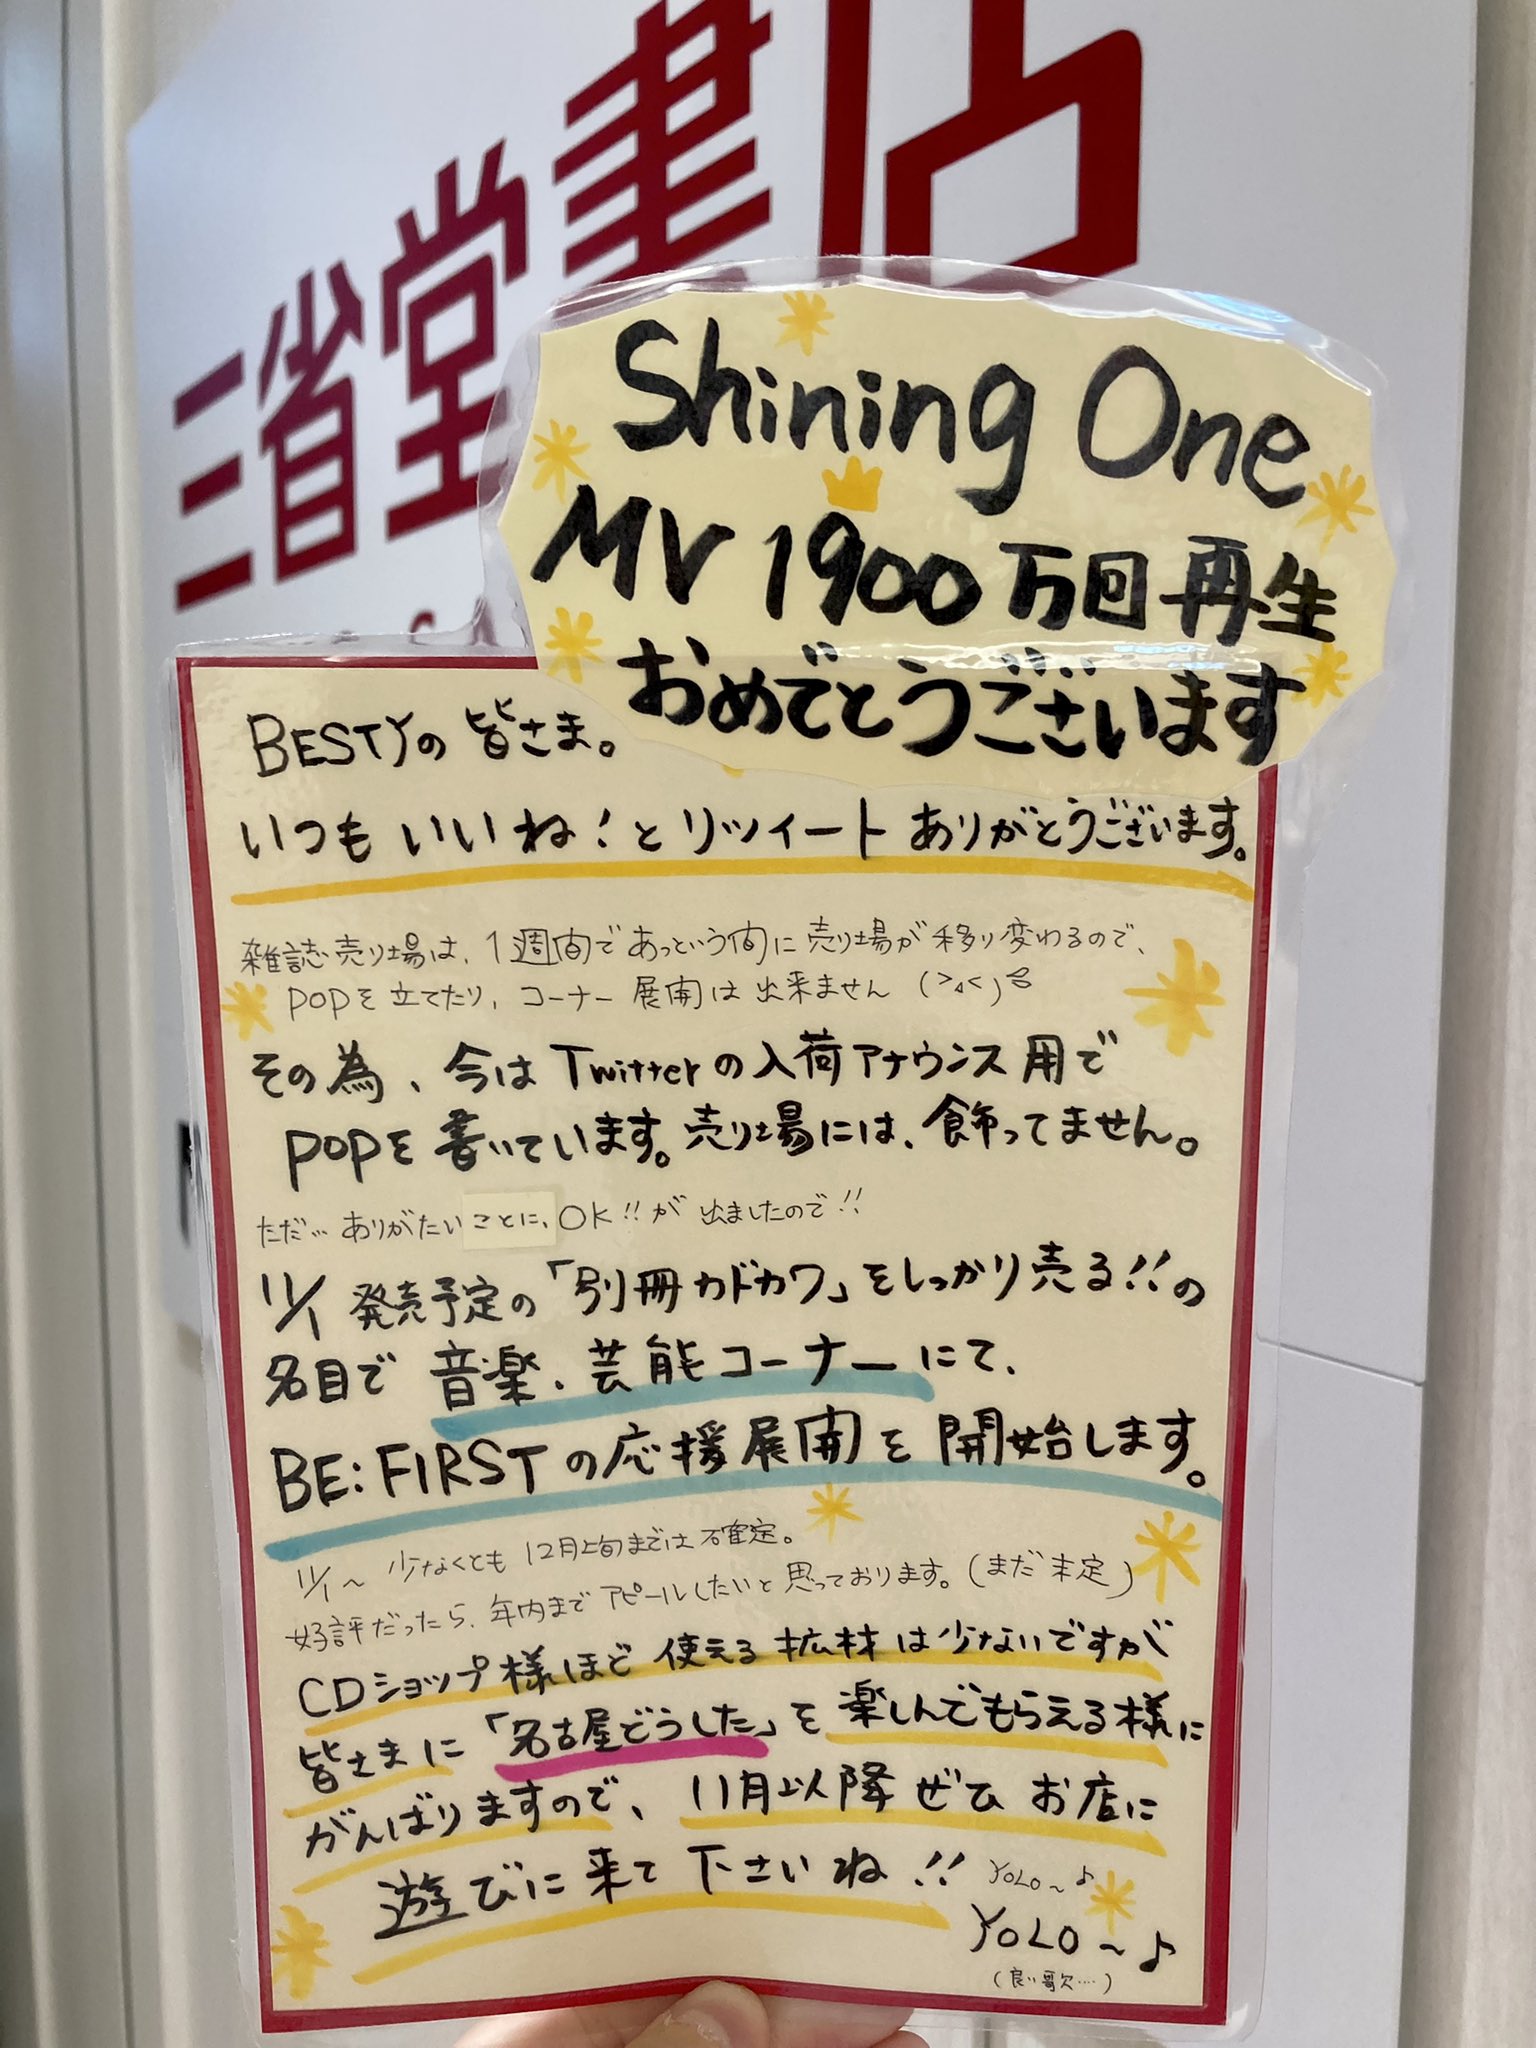 三省堂書店
Shining One
MV 1900万回再生
おめでとうございます
BESTYの皆さま。
いつもいいね!とリツイートありがとうございます。
雑誌売り場は、1週間であっという間に売り場が移り変わるので、
POPを立てたり、コーナー展開は出来ません
その為、今はTwitterの入荷アナウンス用で
POPを書いています。売り場には、飾ってません。
ただ…ありがたいことに、OK!!が出ましたので!!
11/1発売予定の「別冊カドカワ」をしっかり売る!!の
名目で音楽・芸能コーナーにて、
BE:FIRSTの応援展開を開始します。
11/1〜少なくとも12月上旬までは確定。
好評だったら、年内までアピールしたいと思っております。(まだ未定)
CDショップ様ほど使える拡材は少ないですが
皆さまに「名古屋どうした」を楽しんでもらえる様に
がんばりますので、11月以降ぜひお店に
遊びに来て下さいね!! YOLO〜♪
YOLO〜♪
(良い歌….)